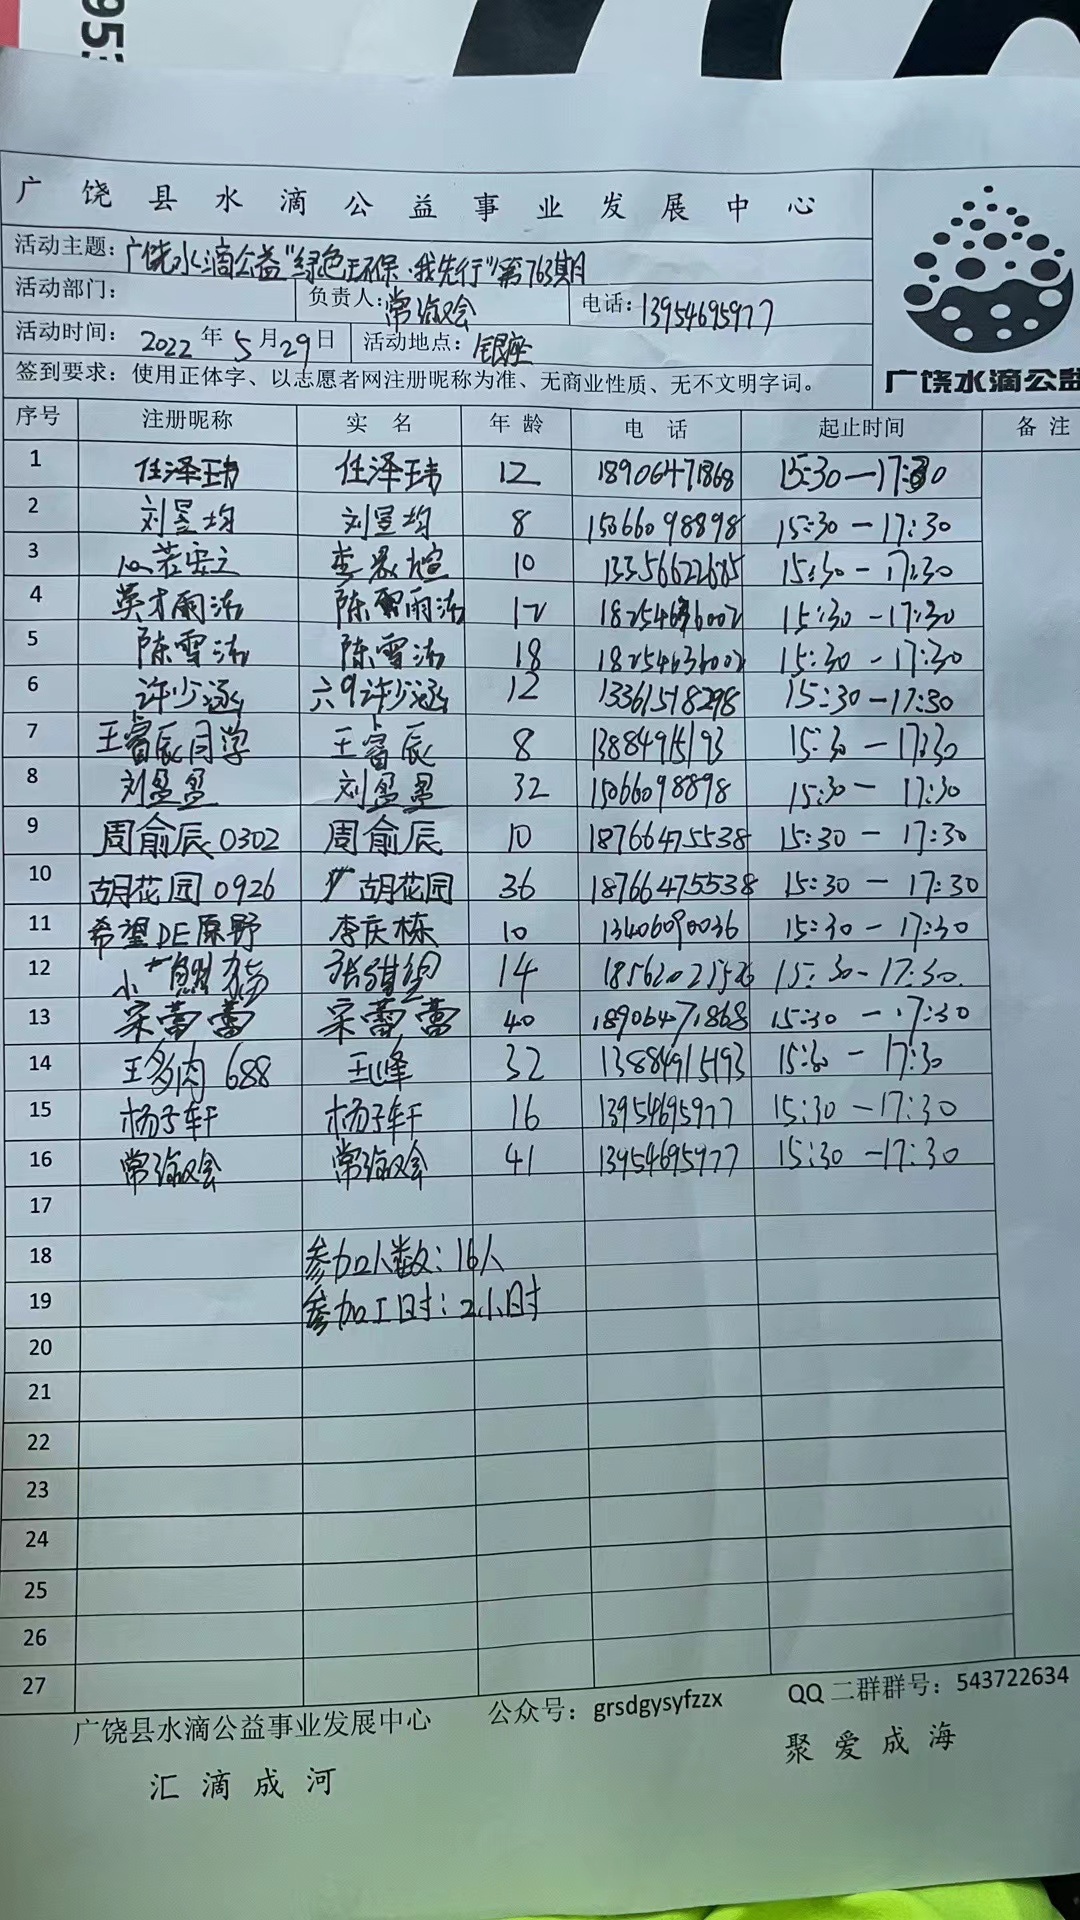 953
广饶县水滴公益事业发展中心
活动主题：广饶水滴公益"绿色环保·我先行"第763期
活动部门： 负责人：常 会 电话：13954695977
活动时间：2022年5月29日 活动地点：银座
签到要求：使用正体字、以志愿者网注册昵称为准、无商业性质、无不文明字词。
广饶水滴公益
序号 注册昵称 实名 年龄 电话 起止时间 备注
1 任泽玮 任泽玮 12 18906471868 15:30—17:30
2 刘昱均 刘昱均 8 15066098898 15:30—17:30
3 若安之 李 煊 10 13356622685 15:30-17:30
4 英才雨洁 陈雨洁 12 18254636002 15:30-17:30
5 陈雪洁 陈雪洁 18 18254636002 15:30-17:30
6 许少涵 六9许少涵 12 13361518298 15:30-17:30
7 王睿辰同学 王睿辰 8 13884915193 15:30—17:30
8 刘盈盈 刘盈盈 32 15066098898 15:30— 17:30
9 周俞辰0302 周俞辰 10 18766475538 15:30— 17:30
10 胡花园0926 胡花园 36 18766475538 15:30— 17:30
11 希望DE原野 李庆栋 10 13406090036 15:30-17:30
12 小 14 18562021526 15:30-17:30.
13 宋蕾蕾 宋蕾蕾 40 18906471868 15:30—17:30
14 王多肉688 王峰 32 13884915193 15:30— 17:30
15 杨子轩 杨子轩 16 13954695977 15:30—17:30
16 常 会 常 会 41 13954695977 15:30—17:30
17
18 参加人数：16人
19 参加工时：2小时
20
21
22
23
24
25
26
27
广饶县水滴公益事业发展中心 公众号：grsdgysyfzzx QQ二群群号：543722634
汇滴成河 聚爱成海